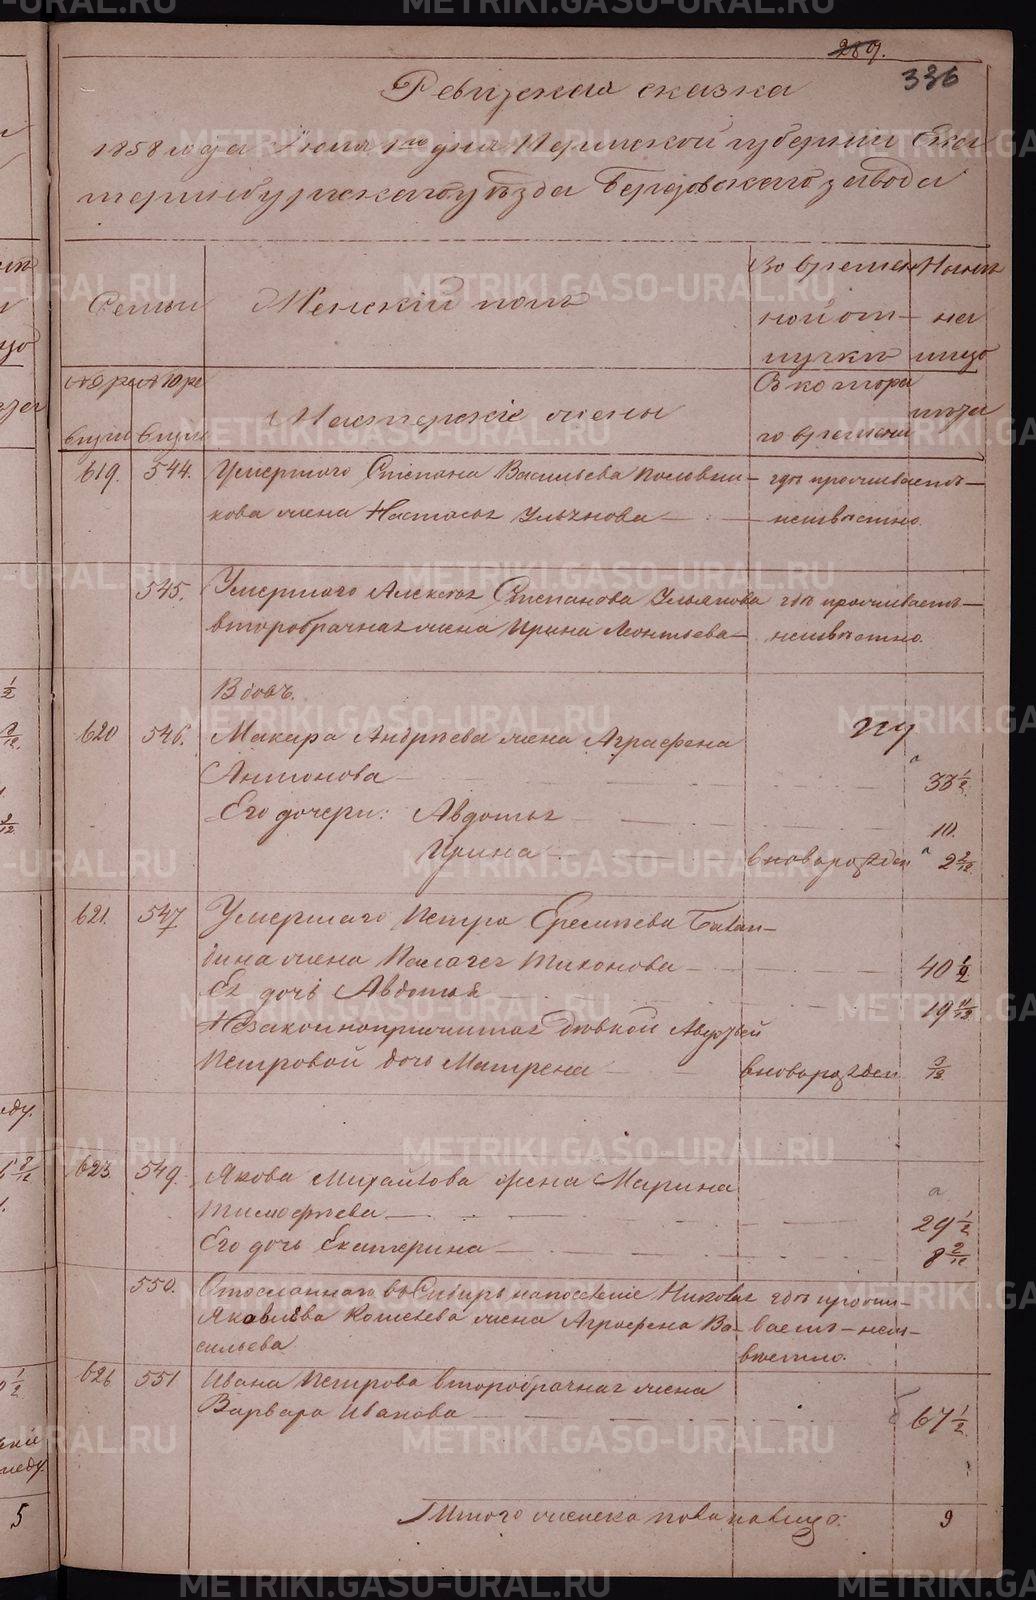 289.
336
Ревизская сказка
1858 года Июля 1го дня Пермской губернии Ека
теринбургскаго уезда Березовскаго завода
Семьи
Женский полъ
Во времен
ной от-
лучкъ
Ныне
на
лицо
Мастерские жены
Съ котора
го времени
лета
619. 544. Умершаго Степана Васильева Половни-
кова жена Настасья Ульянова где проживаетъ-
неизвестно.
545. Умершаго Алексея Степанова Ульянова где проживаетъ-
второбрачная жена Ирина Леонтьева неизвестно.
Вдовъ.
620 546. Макара Андреева жена Аграфена
Антонова 33 1/2
Его дочери: Авдотья 10.
Ирина вновьрожден 2 2/12
621. 547 Умершаго Петра Еремеева
жена Палагея Тихонова 40 1/2
Ея дочь Авдотья 19 11/12
Незаконноприжитая девкой Авдотьей
Петровой дочь Матрена вновьрожден 2/12
623. 549. Якова Михайлова жена Марина
Тимофеева 29 1/2
Его дочь Екатерина 8 2/12
550. Отосланнаго въ Сибирь на поселение
Яковлева жена Аграфена Ва-
сильева
где прожи-
ваетъ-неиз-
вестно.
626 551 Ивана Петрова второбрачная жена
Варвара Иванова 67 1/2
Итого женска пола на лицо: 9
METRIKI.GASO-URAL.RU